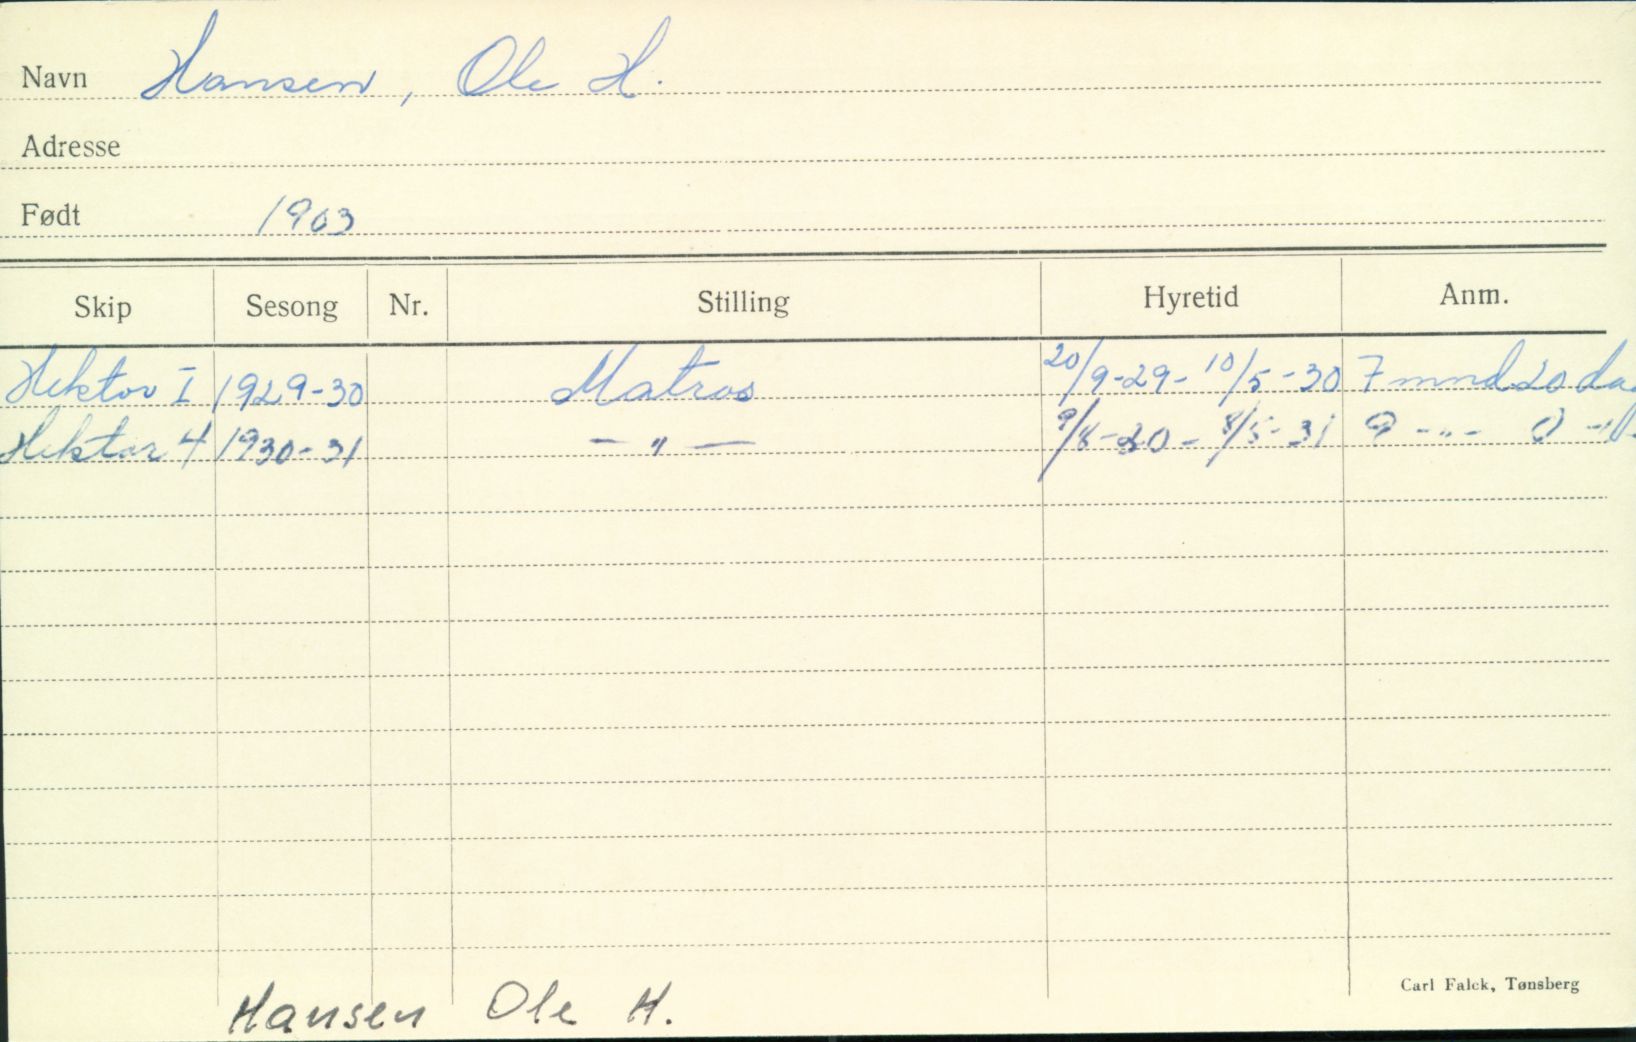 Navn Hansen, Ole H.
Adresse
Født 1903
Skip Sesong Nr. Stilling Hyretid Anm.
Hektor I 1929-30 Matros 20/9-29- 10/5-30 7 mnd 20 da
Hektor 4 1930-31 - " - 9/8-30- 8/5-31 9 - " - 0 - " -
Carl Falck, Tønsberg
Hansen Ole H.